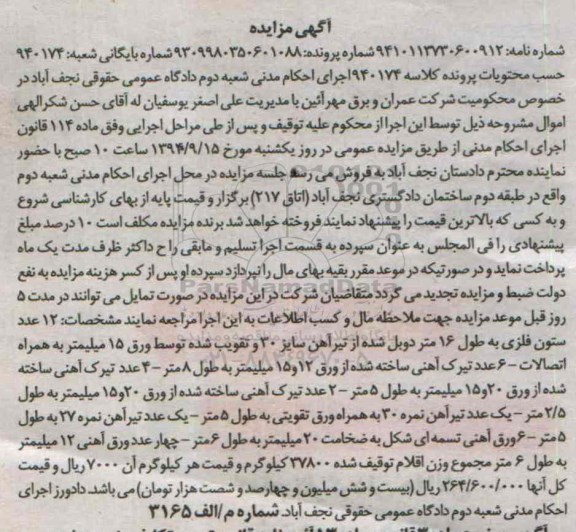 آگهی مزایده
شماره نامه: ۹۴۱۰۱۱۳۷۳۰۶۰۰۹۱۲ شماره پرونده: ۹۳۰۹۹۸۰۳۵۰۶۰۱۰۸۸ شماره بایگانی شعبه: ۹۴۰۱۷۴
حسب محتویات پرونده کلاسه ۹۴۰۱۷۴ اجرای احکام مدنی شعبه دوم دادگاه عمومی حقوقی نجف آباد در
خصوص محکومیت شرکت عمران و برق مهرآئین با مدیریت علی اصغر یوسفیان له آقای حسن شکرالهی
اموال مشروحه ذیل توسط این اجرا از محکوم علیه توقیف و پس از طی مراحل اجرایی وفق ماده ۱۱۴ قانون
اجرای احکام مدنی از طریق مزایده عمومی در روز یکشنبه مورخ ۱۳۹۴/۹/۱۵ ساعت ۱۰ صبح با حضور
نماینده محترم دادستان نجف آباد به فروش می رسد جلسه مزایده در محل اجرای احکام مدنی شعبه دوم
واقع در طبقه دوم ساختمان دادگستری نجف آباد (اتاق ۲۱۷) برگزار و قیمت پایه از بهای کارشناسی شروع
و به کسی که بالاترین قیمت را پیشنهاد نمایند فروخته خواهد شد برنده مزایده مکلف است ۱۰ درصد مبلغ
پیشنهادی را فی المجلس به عنوان سپرده به قسمت اجرا تسلیم و مابقی را ح داکثر ظرف مدت یک ماه
پرداخت نماید و در صورتیکه در موعد مقرر بقیه بهای مال را نپردازد سپرده او پس از کسر هزینه مزایده به نفع
دولت ضبط و مزایده تجدید می گردد متقاضیان شرکت در این مزایده در صورت تمایل می توانند در مدت ۵
روز قبل موعد مزایده جهت ملاحظه مال و کسب اطلاعات به این اجرا مراجعه نمایند مشخصات: ۱۲ عدد
ستون فلزی به طول ۱۶ متر دوبل شده از تیرآهن سایز ۳۰ و تقویب شده توسط ورق ۱۵ میلیمتر به همراه
اتصالات - ۶ عدد تیرک آهنی ساخته شده از ورق ۱۲و۱۵ میلیمتر به طول ۸ متر - ۴ عدد تیرک آهنی ساخته
شده از ورق ۲۰و۱۵ میلیمتر به طول ۵ متر - ۲ عدد تیرک آهنی ساخته شده از ورق ۲۰و۱۵ میلیمتر به طول
۲/۵ متر - یک عدد تیرآهن نمره ۳۰ به همراه ورق تقویتی به طول ۵ متر - یک عدد تیرآهن نمره ۲۷ به طول
۵ متر - ۶ ورق آهنی تسمه ای شکل به ضخامت ۲۰ میلیمتر به طول ۶ متر - چهار عدد ورق آهنی ۱۲ میلیمتر
به طول ۶ متر مجموع وزن اقلام توقیف شده ۳۷۸۰۰ کیلوگرم و قیمت هر کیلوگرم آن ۷۰۰۰ ریال و قیمت
کل آنها ۲۶۴/۶۰۰/۰۰۰ ریال (بیست و شش میلیون و چهارصد و شصت هزار تومان) می باشد. دادورز اجرای
احکام مدنی شعبه دوم دادگاه عمومی حقوقی نجف آباد. شماره م/الف ۳۱۶۵